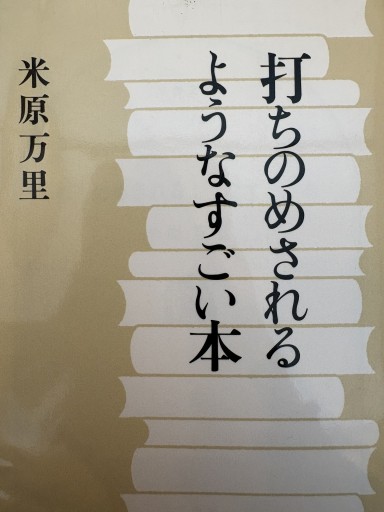 打ちのめされる
ようなすごい本
米原万里